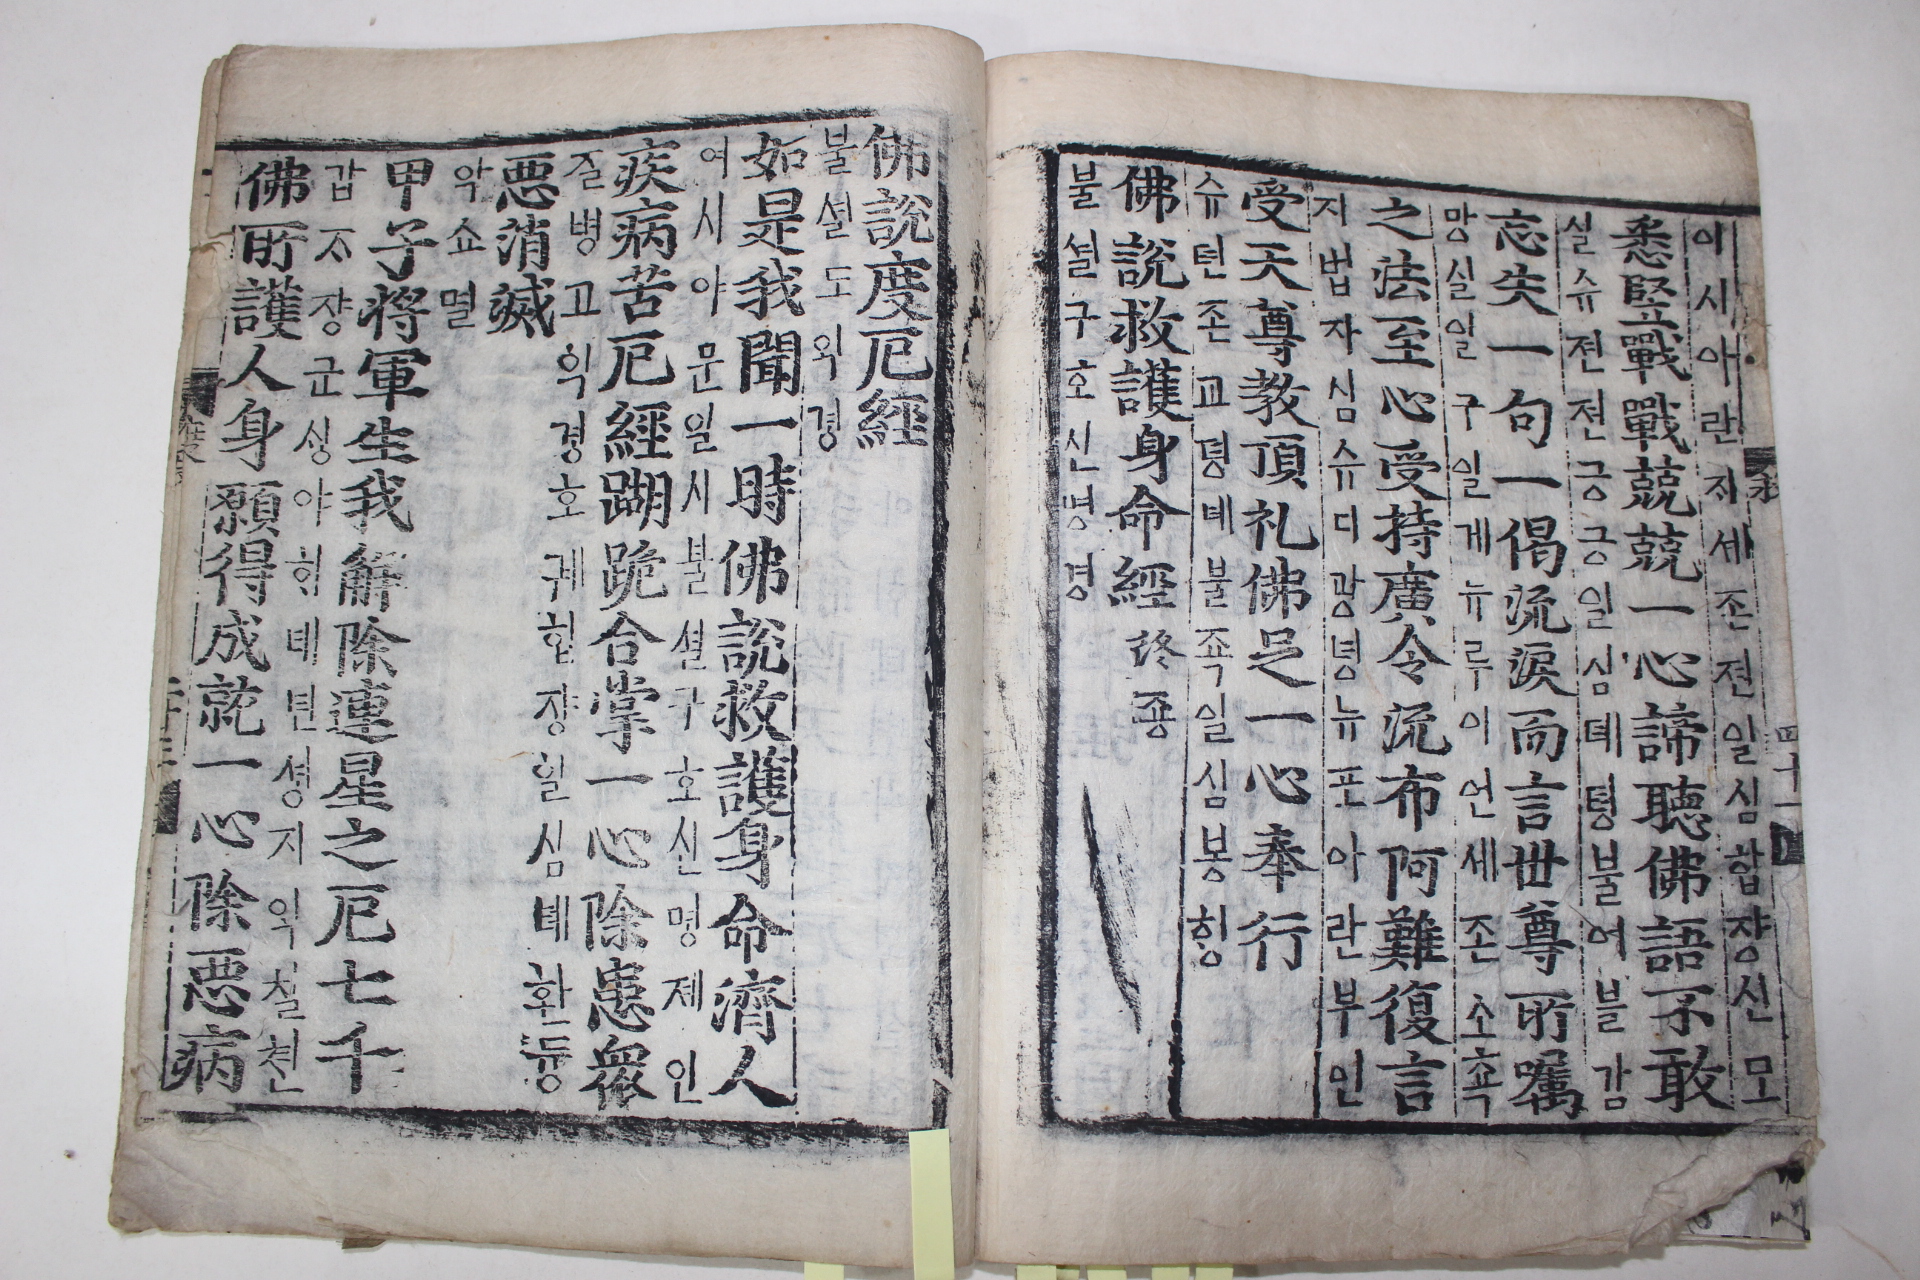 이시아란지셰존젼일심합쟝신모
悉竪戰戰兢兢一心諦聽佛語不敢
실슈젼젼긍긍일심톄텽불어블감
忘失一句一偈流淚而言世尊所囑
망실일구일게뉴루이언셰존소쵹
之法至心受持廣令流布阿難復言
지법자심슈디광녕뉴포아란부인
受天尊教頂礼佛足一心奉行
슈텬존교뎡녜불죡일심봉힝
佛說救護身命經 終 죵
불셜구호신명경
四十一
佛說度厄經
불설도외경
如是我聞一時佛說救護身命濟人
여시아문일시불셜구호신명졔인
疾病苦厄經蹦跪合掌一心除患衆
질병고익경호궤합쟝일심톄환듕
惡消滅
악쇼멸
甲子將軍生我解除運星之厄七千
갑지쟝군싱아히톄텬셩지익칠쳔
佛所護人身願得成就一心除惡病